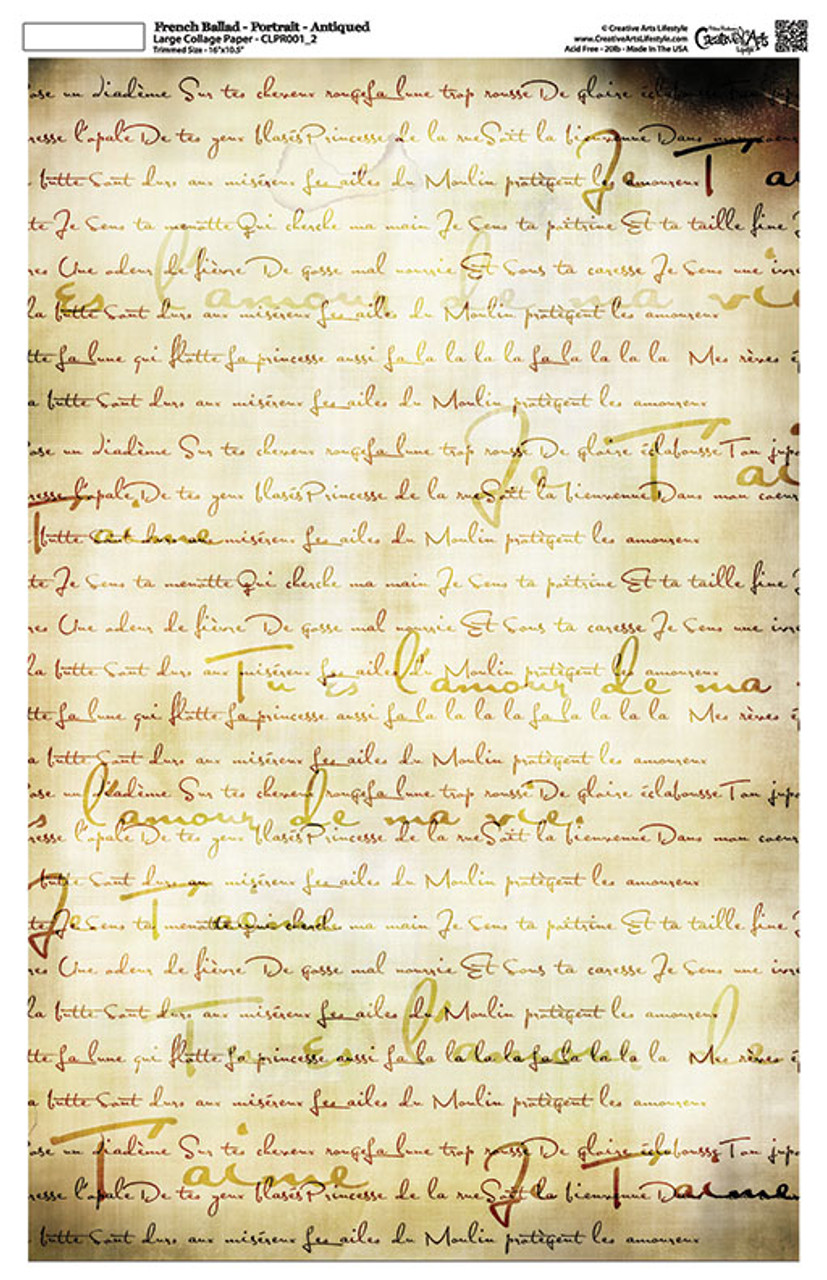 French Ballad - Portrait - Antiqued
Large Collage Paper - CLPR001_2
Trimmed Size - 16"x10.5"
© Creative Arts Lifestyle
www.CreativeArtsLifestyle.com
Acid Free - 20lb - Made In The USA
Creative Arts
Lifestyle
ose un diadème Sur tes cheveux rougeLa lune trop rousseDe gloire
resse l'opaleDe tes yeux blasésPrincesse de la rueSoit la bienvenueDans mon coeur
butte Sont durs aux miséreux Les ailes du Moulin protègent les amoureux
Je T'ai
te Je Sens ta menotte Qui cherche ma main Je Sens ta poitrine Et ta taille fine J
res Une odeur de fièvre De gosse mal nourrie Et Sous ta caresse Je Sens une ivre
Es l'amour de ma vie
la butte Sont durs aux miséreux Les ailes du Moulin protègent les amoureux
tte La lune qui flotte La princesse aussi La la la la la La la la la la Mes rêves é
a butte Sont durs aux miséreux Les ailes du Moulin protègent les amoureux
ose un diadème Sur tes cheveux rougeLa lune trop rousseDe gloire éclabousseTon jupo
Je T'ai
resse l'opaleDe tes yeux blasésPrincesse de la rueSoit la bienvenueDans mon coeur
T'aime
butte Sont durs aux miséreux Les ailes du Moulin protègent les amoureux
te Je Sens ta menotte Qui cherche ma main Je Sens ta poitrine Et ta taille fine J
res Une odeur de fièvre De gosse mal nourrie Et Sous ta caresse Je Sens une ivre
la butte Sont durs aux miséreux Les ailes du Moulin protègent les amoureux
Tu Es l'amour de ma
tte La lune qui flotte La princesse aussi La la la la la La la la la la Mes rêves é
a butte Sont durs aux miséreux Les ailes du Moulin protègent les amoureux
ose un diadème Sur tes cheveux rougeLa lune trop rousseDe gloire éclabousseTon jupo
s l'amour de ma vie.
resse l'opaleDe tes yeux blasésPrincesse de la rueSoit la bienvenueDans mon coeur
butte Sont durs aux miséreux Les ailes du Moulin protègent les amoureux
Je T'aime
te Je Sens ta menotte Qui cherche ma main Je Sens ta poitrine Et ta taille fine J
res Une odeur de fièvre De gosse mal nourrie Et Sous ta caresse Je Sens une ivre
la butte Sont durs aux miséreux Les ailes du Moulin protègent les amoureux
Tu Es l'amour de
tte La lune qui flotte La princesse aussi La la la la la La la la la la Mes rêves é
a butte Sont durs aux miséreux Les ailes du Moulin protègent les amoureux
ose un diadème Sur tes cheveux rougeLa lune trop rousseDe gloire éclabousseTon jupo
T'aime Je T'aime
resse l'opaleDe tes yeux blasésPrincesse de la rueSoit la bienvenueDa
butte Sont durs aux miséreux Les ailes du Moulin protègent les amoureux